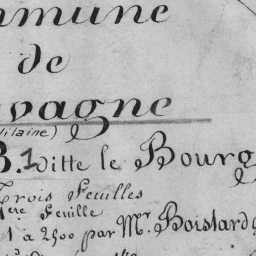 mmune
de
vagne
Vilaine)
B. 1 ditte le Bourg
Trois Feuilles
1ère Feuille
1 à 2500 par Mr. Boistard